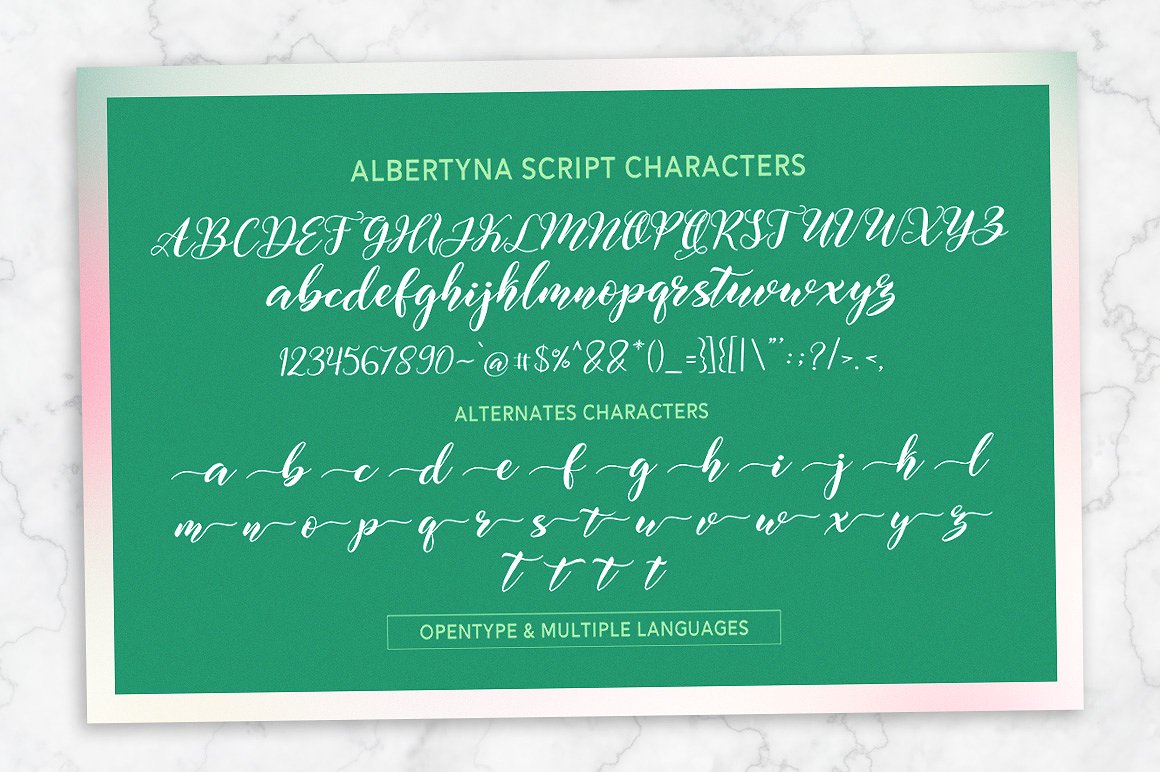 ALBERTYNA SCRIPT CHARACTERS
ABCDEFGHIJKLMNOPQRSTUVWXYZ
abcdefghijklmnopqrstuvwxyz
1234567890~`@#$%^&&*()_={}][{[|\"':;?/>.<,
ALTERNATES CHARACTERS
a b c d e f g h i j k l
m n o p q r s t u v w x y z
t t t t
OPENTYPE & MULTIPLE LANGUAGES